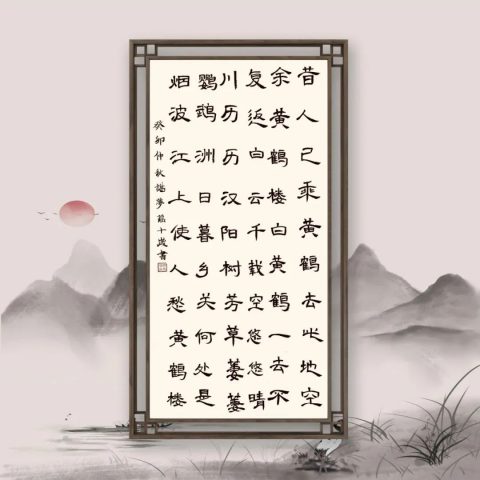 昔人已乘黄鹤去此地空
余黄鹤楼白黄鹤一去不
复返白云千载空悠悠晴
川历历汉阳树芳草萋萋
鹦鹉洲日暮乡关何处是
烟波江上使人愁黄鹤楼
癸卯仲秋梦十岁书